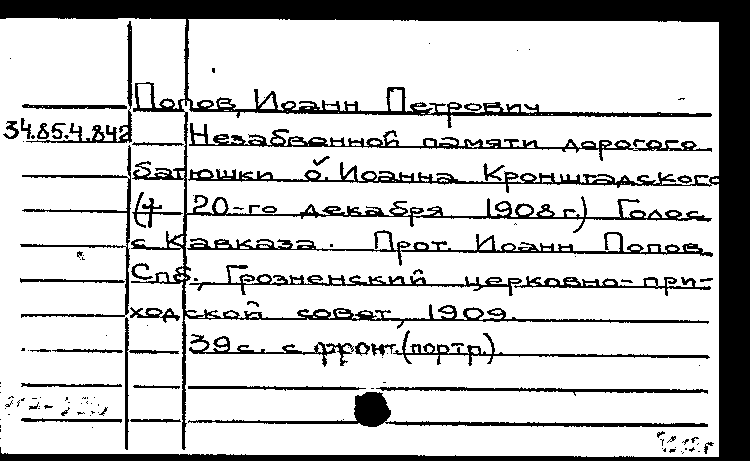 Попов, Иоанн Петрович
34.85.4.842
Незабвенной памяти дорогого
батюшки о. Иоанна Кронштадского
(† 20-го декабря 1908 г.) Голос
с Кавказа. Прот. Иоанн Попов.
Спб., Грозненский церковно-при-
ходской совет, 1909.
39 с. с фронт. (портр.).